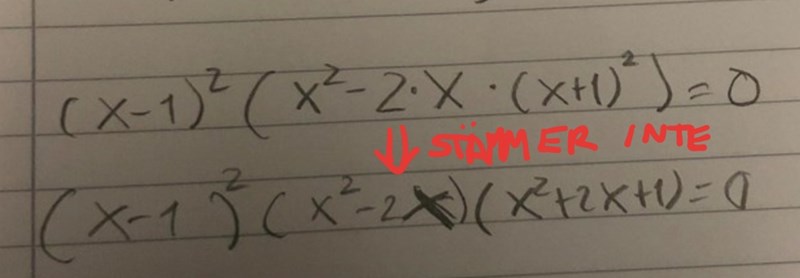 (x-1)² (x²-2·x·(x+1)²)=0
⇓ STÄMMER INTE
(x-1)² (x²-2x)(x²+2x+1)=0